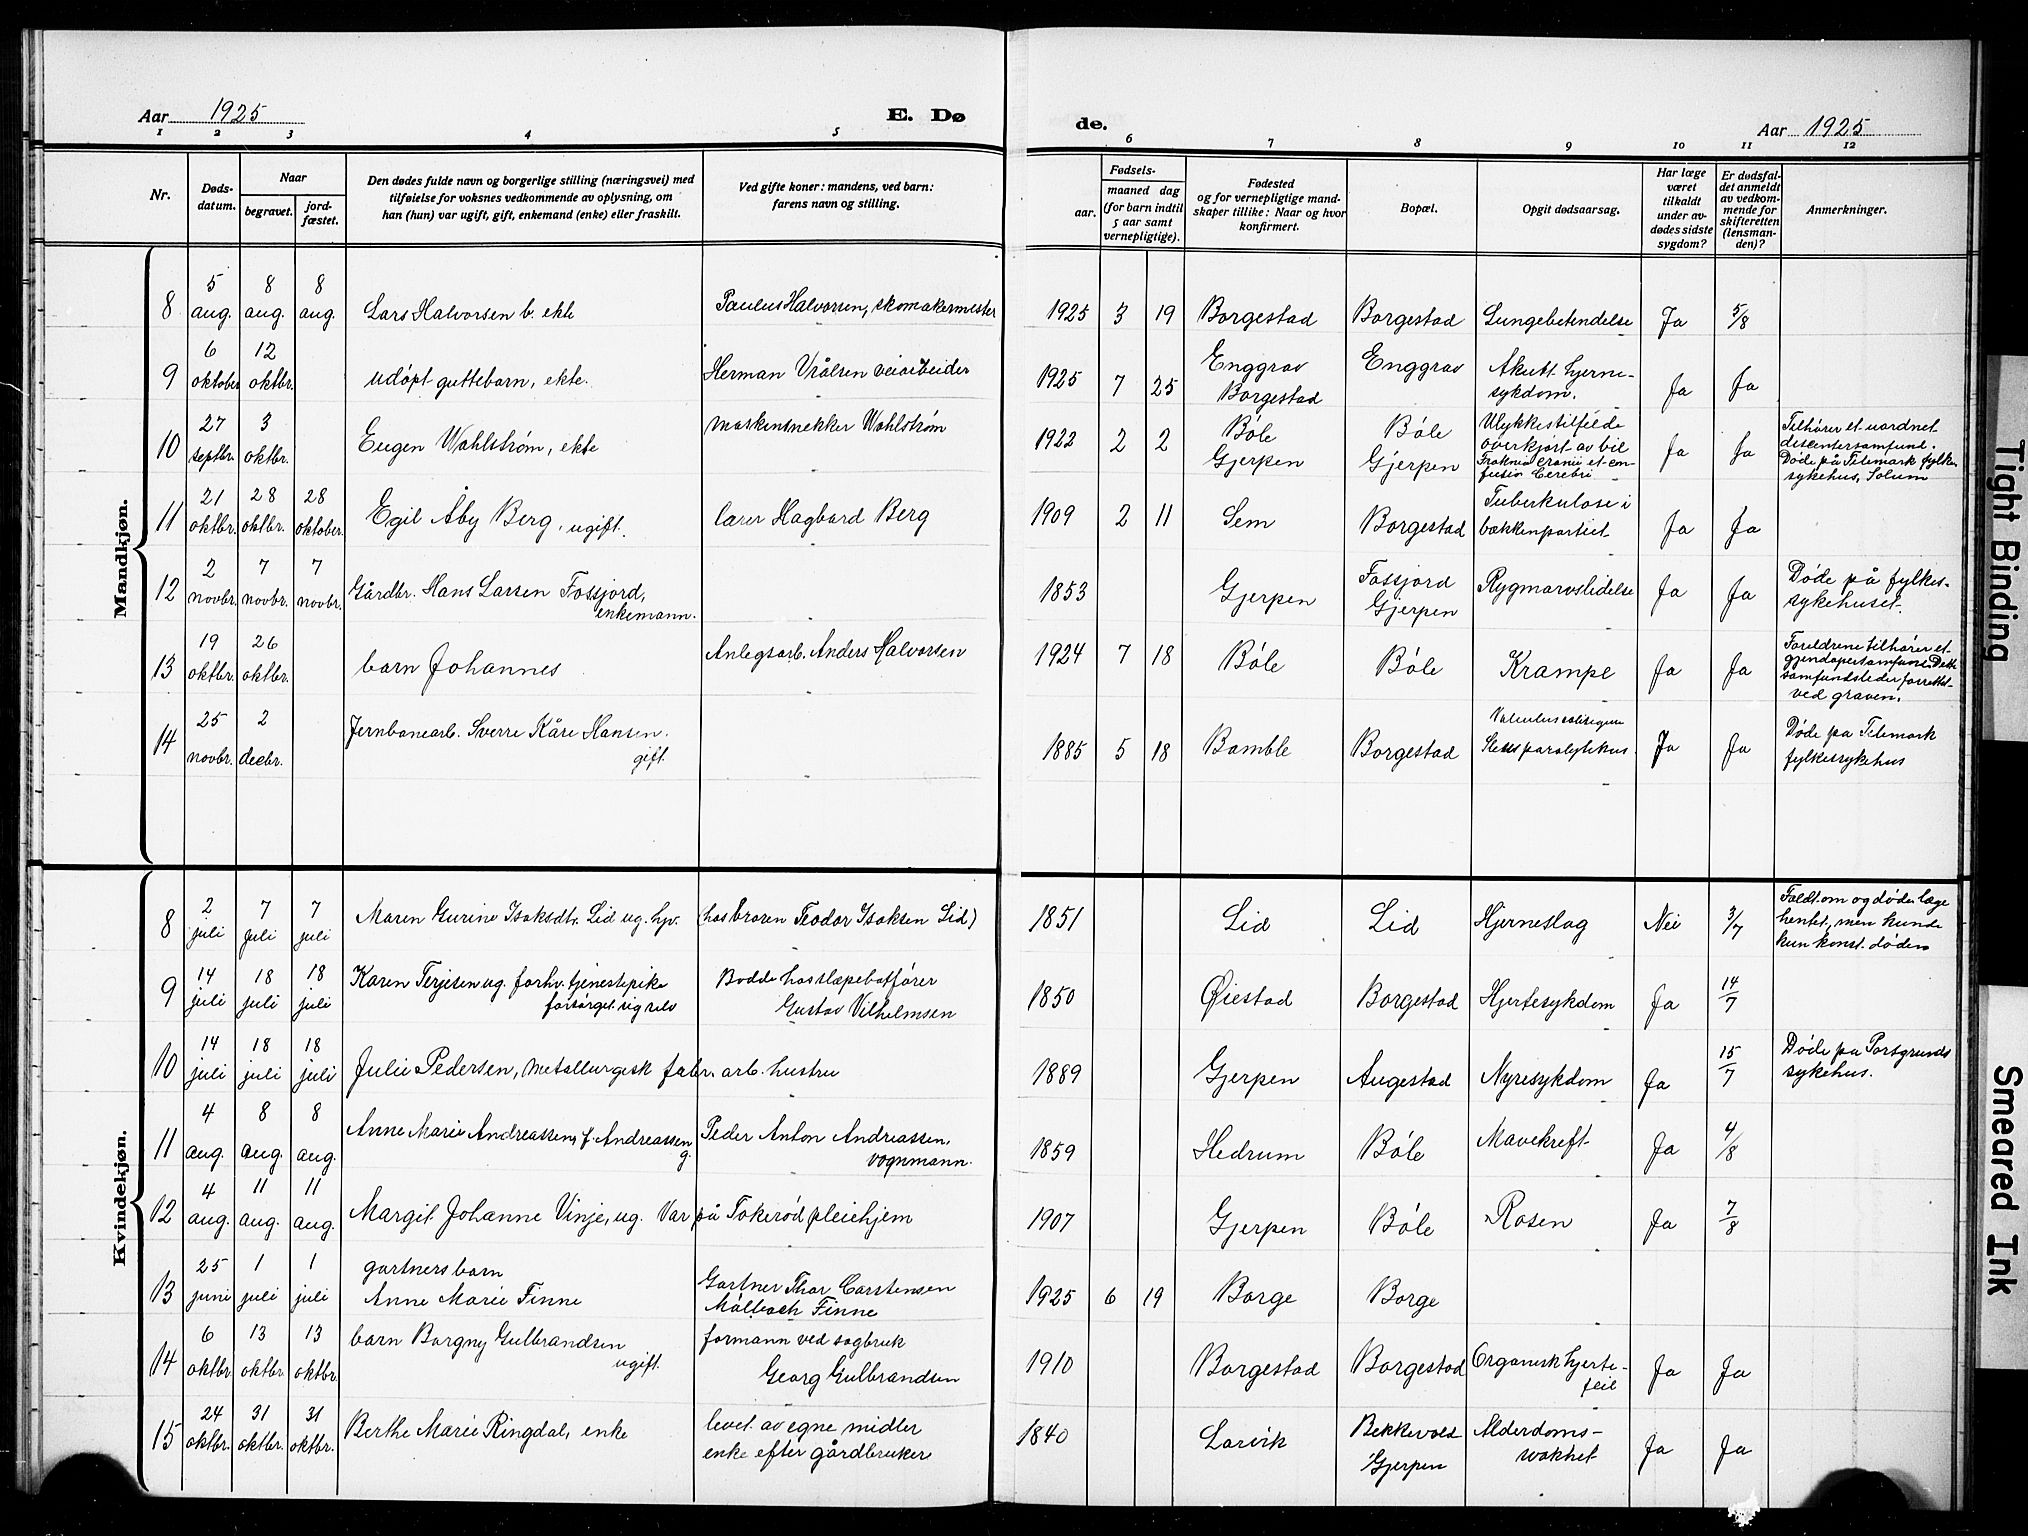 Aar 1925
E. Dø
de.
Aar 1925
1 2 3 4 5 6 7 8 9 10 11 12
Nr.
Døds-
datum.
Naar
begravet.
jord-
fæstet.
Den dødes fulde navn og borgerlige stilling (næringsvei) med
tilføielse for voksnes vedkommende av oplysning, om
han (hun) var ugift, gift, enkemand (enke) eller fraskilt.
Ved gifte koner: mandens, ved barn:
farens navn og stilling.
Fødsels-
aar.
maaned dag
(for barn indtil
5 aar samt
vernepligtige).
Fødested
og for vernepligtige mand-
skaper tillike: Naar og hvor
konfirmert.
Bopæl.
Opgit dødsaarsag.
Har læge
været
tilkaldt
under av-
dødes sidste
sygdom?
Er dødsfal-
det anmeldt
av vedkom-
mende for
skifteretten
(lensman-
den)?
Anmerkninger.
Mandkjøn.
8 5 aug. 8 aug. 8 aug. Lars Halvorsen b. ekte Paulus Halvorsen, skomakermester 1925 3 19 Borgestad Borgestad Lungebetendelse Ja 5/8
9 6 oktober 12 oktbr. udøpt guttebarn, ekte. Herman Vrålsen veiarbeider 1925 7 25 Enggrav Borgestad Enggrav Akutt hjerne-
sykdom. Ja Ja
10 27 septbr. 3 oktbr. Eugen Wahlstrøm, ekte maskinsnekker Wahlstrøm 1922 2 2 Bøle Gjerpen Bøle Gjerpen Ulykkestilfelde
overkjørt av bil
Fraknio cranii et con-
fusio Cerebri Ja Ja Tilhører et uordnet
discentersamfund.
Døde på Telemark fylkes
sykehus, Solum
11 21 oktbr. 28 oktbr. 28 oktober. Egil Åby Berg, ugift. lærer Hagbard Berg 1909 2 11 Sem Borgestad Tuberkulose i
bækkenpartiet Ja Ja
12 2 novbr. 7 novbr. 7 novbr. Gårdbr. Hans Larsen Fossjord,
enkemann. 1853 Gjerpen Fossjord
Gjerpen Rygmarvslidelse Ja Ja Døde på fylkes-
sykehuset.
13 19 oktbr. 26 oktbr. barn Johannes Anlegsarb. Anders Halvorsen 1924 7 18 Bøle Bøle Krampe Ja Ja Foreldrene tilhører et
gjendøpersamfund. Dette
samfundsleder forrettet
ved graven.
14 25 novbr. 2 decbr. Jernbanearb. Sverre Kåre Hansen.
gift. 1885 5 18 Bamble Borgestad
paralytikus. Ja Ja Døde pa Telemark
fylkessykehus
Kvindekjøn.
8 2 juli 7 juli 7 juli Maren Gurine Isaksdtr. Lid ug. hjv. (hos broren Teodor Isaksen Lid) 1851 Lid Lid Hjerneslag Nei 3/7 Faldt om og døde. læge
hentet, men kunde
kun konst. døden
9 14 juli 18 juli 18 juli Karen Terjesen ug. forhv. tjenestepike
forsørget sig selv Bodde hos slæpebatfører
Gustav Vilhelmsen 1850 Øiestad Borgestad Hjertesykdom Ja 14/7
10 14 juli 18 juli 18 juli Julie Pedersen, metallurgisk fabr. arb. hustru 1889 Gjerpen Augestad Nyresykdom Ja 15/7 Døde pa Porsgrunds
sykehus.
11 4 aug. 8 aug. 8 aug. Anne Marie Andreassen, f. Andreassen
g. Peder Anton Andreassen,
vognmann. 1859 Hedrum Bøle Mavekreft Ja 4/8
12 4 aug. 11 aug. 11 aug. Margit Johanne Vinje, ug. Var på Tokerød pleiehjem 1907 Gjerpen Bøle Rosen Ja 7/8
13 25 juni 1 juli 1 juli gartnersbarn
Anne Marie Finne Gartner Thor Carstensen
Målbach Finne 1925 6 19 Borge Borge
14 6 oktbr. 13 oktbr. 13 oktbr. barn Borgny Gulbrandsen
ugift. formann ved sagbruk
Georg Gulbrandsen 1910 Borgestad Borgestad Organisk hjerte-
feil Ja Ja
15 24 oktbr. 31 oktbr. 31 oktbr. Berthe Marie Ringdal, enke levet av egne midler
enke efter gårdbruker 1840 Larvik Bekkevold
Gjerpen Alderdoms-
svakhet Ja Ja
Tight Binding
Smeared Ink